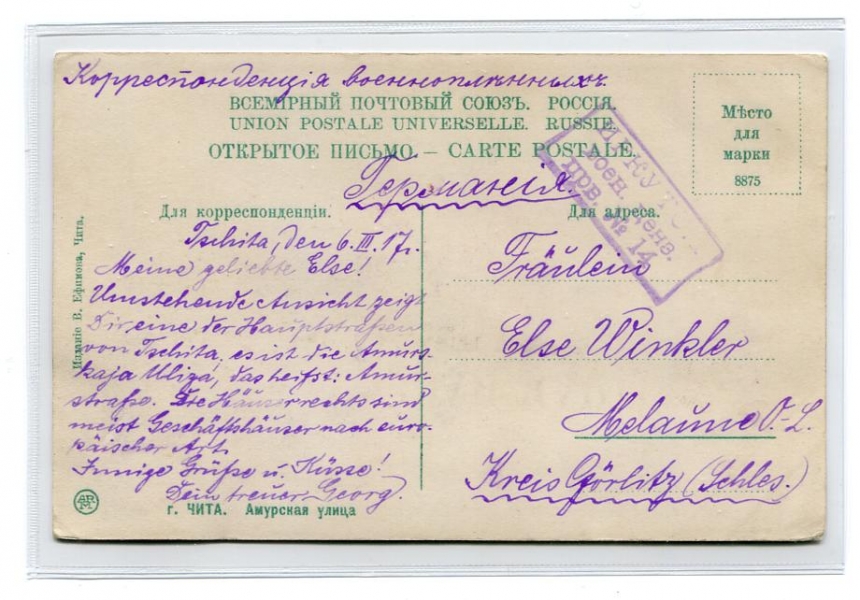 Корреспонденція военноплѣнныхъ.
ВСЕМІРНЫЙ ПОЧТОВЫЙ СОЮЗЪ. РОССІЯ.
UNION POSTALE UNIVERSELLE. RUSSIE.
ОТКРЫТОЕ ПИСЬМО. — CARTE POSTALE.
Мѣсто
для
марки
8875
Германія.
ИРКУТСК
воен. ценз.
№ 14
Для корреспонденціи.
Tschita, den 6. III. 17.
Meine geliebte Else!
Umstehende Ansicht zeigt
Dir eine der Hauptstraßen
von Tschita, es ist die Amurs-
kaja Uliza, das heißt: Amur-
straße. Die Häuser rechts sind
meist Geschäftshäuser nach euro-
päischer Art.
Innige Grüße u. Küsse!
Dein treuer Georg.
Для адреса.
Fräulein
Else Winkler
Melaune O.-L.
Kreis Görlitz (Schles.)
Изданіе В. Ефимова, Чита.
г. ЧИТА. Амурская улица